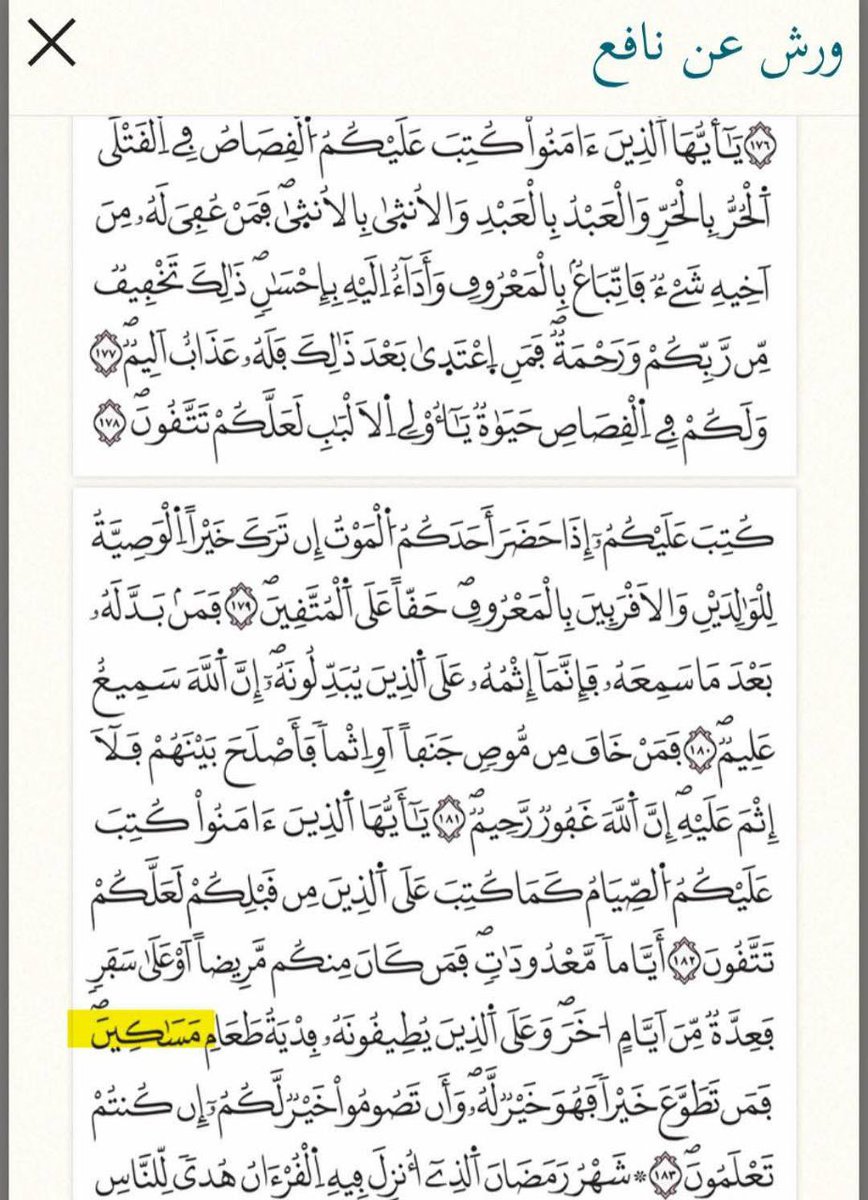 ورش عن نافع
١٧٦ يَٰٓأَيُّهَا اَ۬لذِينَ ءَامَنُواْ كُتِبَ عَلَيْكُمُ اُ۬لْقِصَاصُ فِے اِ۬لْقَتْلَي
اَ۬لْحُرُّ بِالْحُرِّ وَالْعَبْدُ بِالْعَبْدِ وَالُانث۪ىٰ بِالُانث۪ىٰۖ فَمَنْ عُفِيَ لَهُۥ مِنَ
اَخِيهِ شَےْءٞ فَاتِّبَاعُۢ بِالْمَعْرُوفِ وَأَدَآءٌ اِلَيْهِ بِإِحْسَٰنٖۖ ذَٰلِكَ تَخْفِيفٞ
مِّن رَّبِّكُمْ وَرَحْمَةٞۖ فَمَنِ اِ۪عْتَد۪ىٰ بَعْدَ ذَٰلِكَ فَلَهُۥ عَذَابٌ اَلِيمٞۖ ١٧٧
وَلَكُمْ فِے اِ۬لْقِصَاصِ حَيَوٰةٞ يَٰٓأُوْلِے اِ۬لَالْبَٰبِ لَعَلَّكُمْ تَتَّقُونَۖ ١٧٨
كُتِبَ عَلَيْكُمُۥٓ إِذَا حَضَرَ أَحَدَكُمُ اُ۬لْمَوْتُ إِن تَرَكَ خَيْراً اِ۬لْوَصِيَّةُ
لِلْوَٰلِدَيْنِ وَالَاقْرَبِينَ بِالْمَعْرُوفِۖ حَقّاً عَلَي اَ۬لْمُتَّقِينَۖ ١٧٩ فَمَنۢ بَدَّلَهُۥ
بَعْدَ مَا سَمِعَهُۥ فَإِنَّمَآ إِثْمُهُۥ عَلَي اَ۬لذِينَ يُبَدِّلُونَهُۥٓۖ إِنَّ اَ۬للَّهَ سَمِيعٌ
عَلِيمٞۖ ١٨٠ فَمَنْ خَافَ مِن مُّوصٖ جَنَفاً اَوِ اِثْماً فَأَصْلَحَ بَيْنَهُمْ فَلَآ
إِثْمَ عَلَيْهِۖ إِنَّ اَ۬للَّهَ غَفُورٞ رَّحِيمٞۖ ١٨١ يَٰٓأَيُّهَا اَ۬لذِينَ ءَامَنُواْ كُتِبَ
عَلَيْكُمُ اُ۬لصِّيَامُ كَمَا كُتِبَ عَلَي اَ۬لذِينَ مِن قَبْلِكُمْ لَعَلَّكُمْ
تَتَّقُونَ ١٨٢ أَيَّاماً مَّعْدُودَٰتٖۖ فَمَن كَانَ مِنكُم مَّرِيضاً اَوْ عَلَىٰ سَفَرٖ
فَعِدَّةٞ مِّنَ اَيَّامٍ اُخَرَۖ وَعَلَي اَ۬لذِينَ يُطِيقُونَهُۥ فِدْيَةُ طَعَامِ مَسَٰكِينَۖ
فَمَن تَطَوَّعَ خَيْراً فَهُوَ خَيْرٞ لَّهُۥۖ وَأَن تَصُومُواْ خَيْرٞ لَّكُمُۥٓ إِن كُنتُمْ
تَعْلَمُونَۖ ١٨٣ ۞ شَهْرُ رَمَضَانَ اَ۬لذِےٓ أُنزِلَ فِيهِ اِ۬لْقُرْءَانُ هُديٗ لِّلنَّاسِ